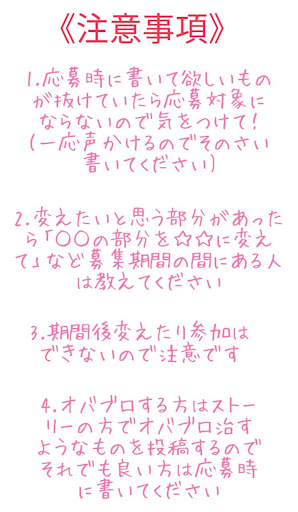 《注意事項》
1.応募時に書いて欲しいもの
が抜けていたら応募対象に
ならないので気をつけて!
(一応声かけるのでそのさい
書いてください)
2.変えたいと思う部分があった
ら「○○の部分を☆☆に変え
て」など募集期間の間にある人
は教えてください
3.期間後変えたり参加は
できないので注意です
4.オバブロする方はストー
リーの方でオバブロ治す
ようなものを投稿するので
それでも良い方は応募時
に書いてください